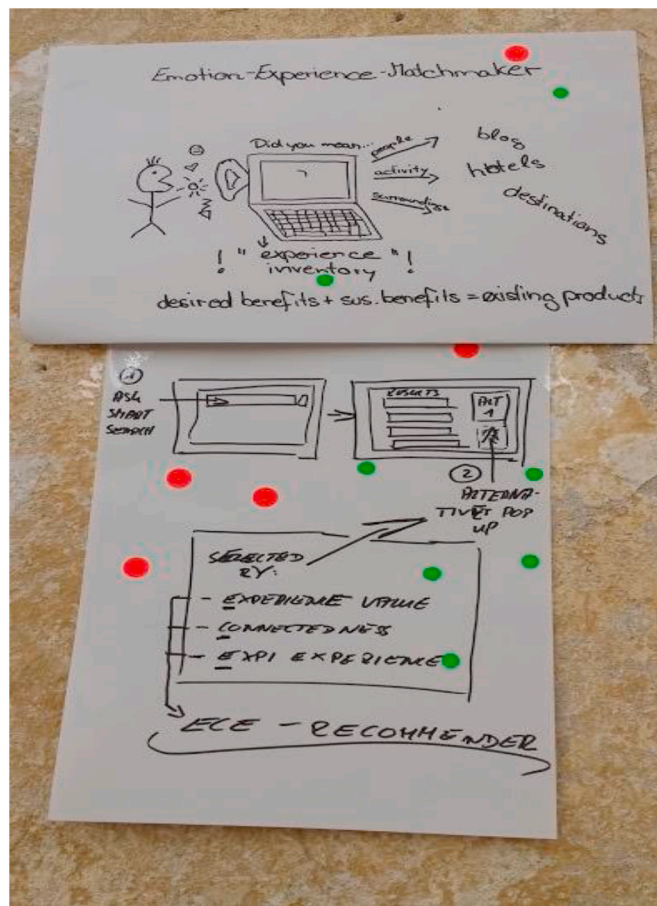 Emotion-Experience-Matchmaker
Did you mean...
people
activity
surroundings
blog
hotels
destinations
! "experience" !
inventory
desired benefits + sus. benefits = existing products
1
ASK
SMART
SEARCH
RESULTS
ALT
1
2
ALTERNA-
TIVES POP
UP
SELECTED
BY:
- EXPERIENCE VALUE
- CONNECTEDNESS
- EXPI EXPERIENCE
ECE - RECOMMENDER